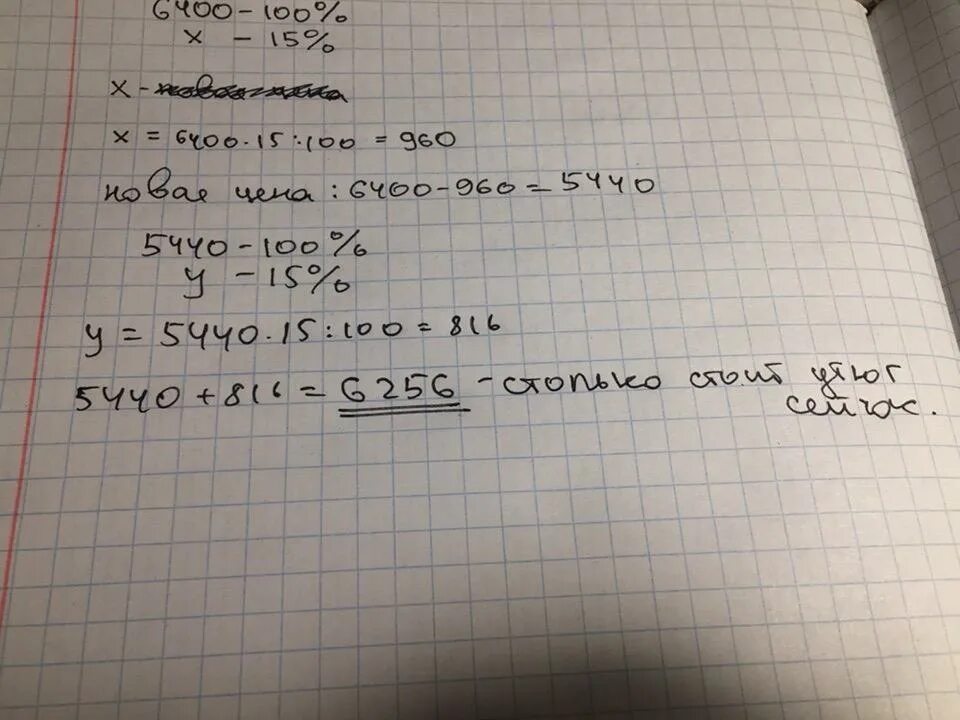 6400 - 100%
x - 15%
x -
x = 6400 · 15 : 100 = 960
новая цена : 6400 - 960 = 5440
5440 - 100%
y - 15%
y = 5440 · 15 : 100 = 816
5440 + 816 = 6256 - столько стоит утюг
сейчас.